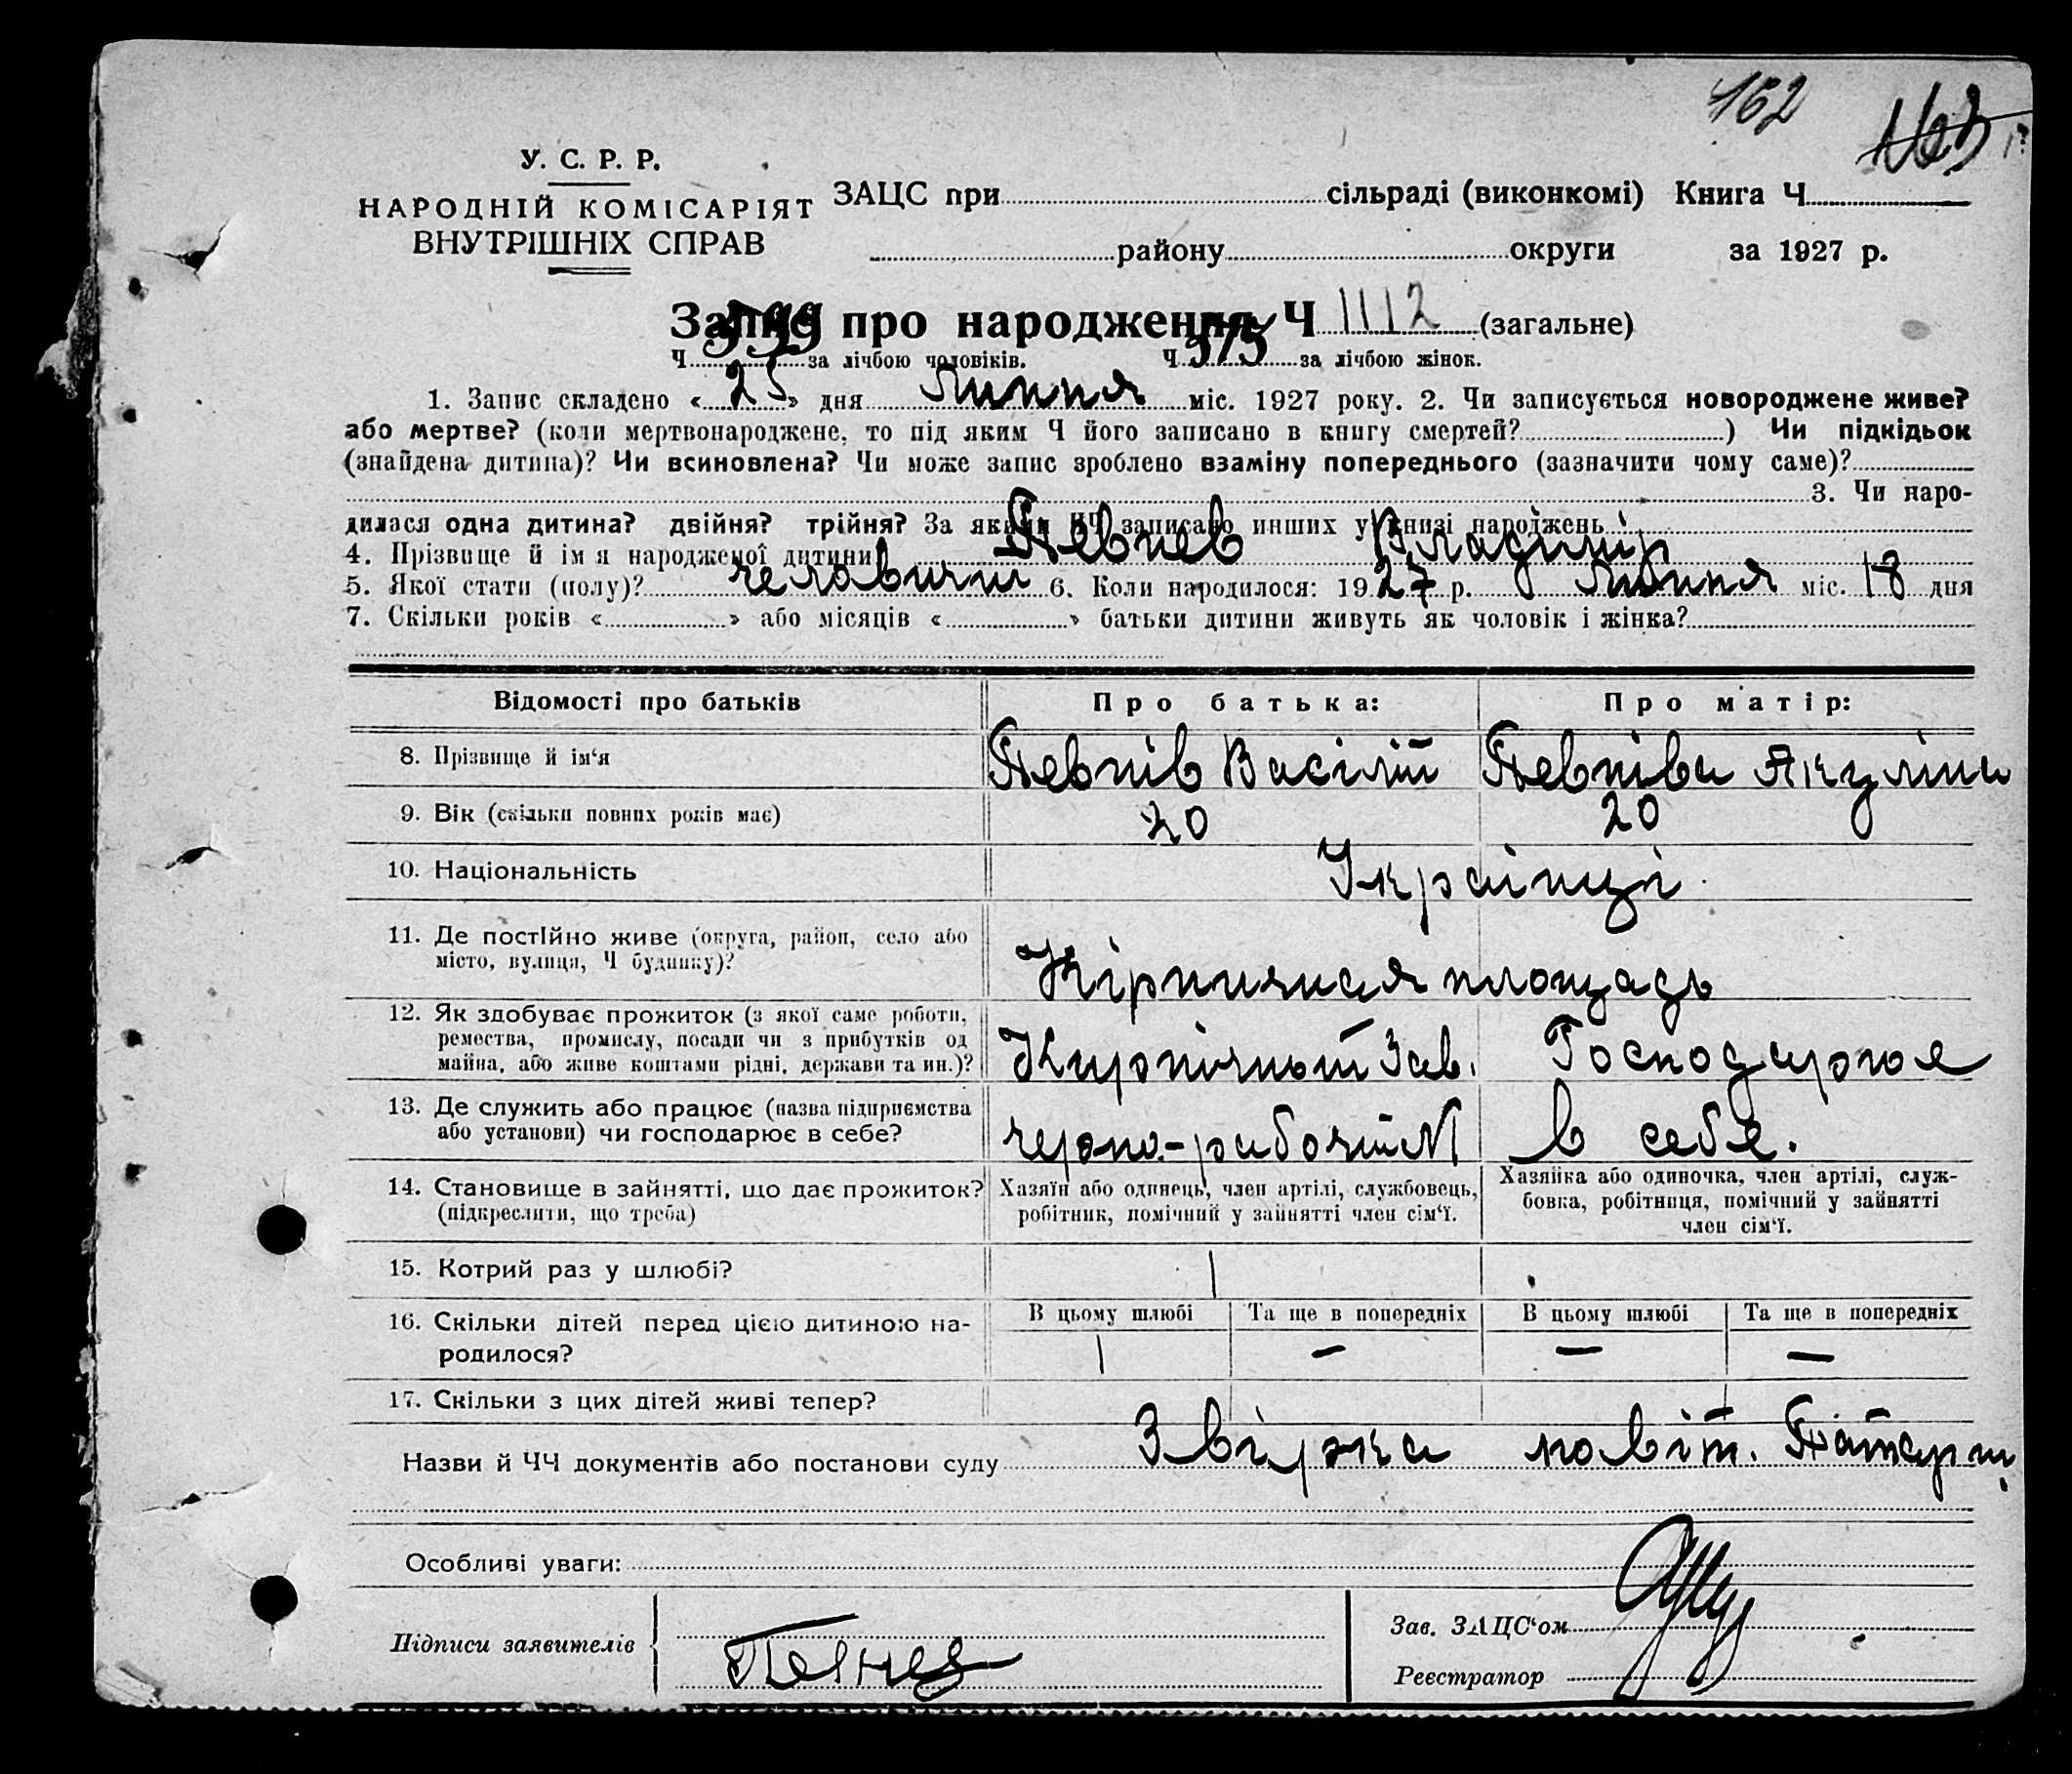 162
163
У. С. Р. Р.
НАРОДНІЙ КОМІСАРІЯТ
ВНУТРІШНІХ СПРАВ
ЗАЦС при сільраді (виконкомі) Книга Ч
району округи за 1927 р.
Запис про народження Ч 1112 (загальне)
Ч 599 за лічбою чоловіків. Ч 513 за лічбою жінок.
1. Запис складено « 25 » дня Липня міс. 1927 року. 2. Чи записується новороджене живе?
або мертве? (коли мертвонароджене, то під яким Ч його записано в книгу смертей? ) Чи підкідьок
(знайдена дитина)? Чи всиновлена? Чи може запис зроблено взаміну попереднього (зазначити чому саме)?
3. Чи наро-
дилася одна дитина? двійня? трійня? За якими ЧЧ записано инших у книзі народжень
4. Прізвище й ім я народженої дитини Певнев Владімір
5. Якої стати (полу)? челавичій 6. Коли народилося: 1927 р. Липня міс. 18 дня
7. Скільки років « » або місяців « » батьки дитини живуть як чоловік і жінка?
Відомості про батьків Про батька: Про матір:
8. Прізвище й ім‘я Певнів Васілій Певніва Акуліна
9. Вік (скільки повних років має) 20 20
10. Національність Українці
11. Де постійно живе (округа, район, село або
місто, вулиця, Ч будинку)? Кірпичная площадь
12. Як здобуває прожиток (з якої саме роботи,
ремества, промислу, посади чи з прибутків од
майна, або живе коштами рідні, держави та ин.)? Кирпічный Зав. Господарюя
13. Де служить або працює (назва підприємства
або установи) чи господарює в себе? черно-рабочий в себя.
14. Становище в зайнятті, що дає прожиток?
(підкреслити, що треба)
Хазяїн або одинець, член артілі, службовець,
робітник, помічний у зайнятті член сім‘ї.
Хазяйка або одиночка, член артілі, служ-
бовка, робітниця, помічний у зайнятті
член сім‘ї.
15. Котрий раз у шлюбі? 1
16. Скільки дітей перед цією дитиною на-
родилося?
В цьому шлюбі Та ще в попередніх В цьому шлюбі Та ще в попередніх
1 — — —
17. Скільки з цих дітей живі тепер?
Назви й ЧЧ документів або постанови суду Звірка повіт.
Особливі уваги:
Підписи заявителів Певнев
Зав. ЗАЦС‘ом
Реєстратор